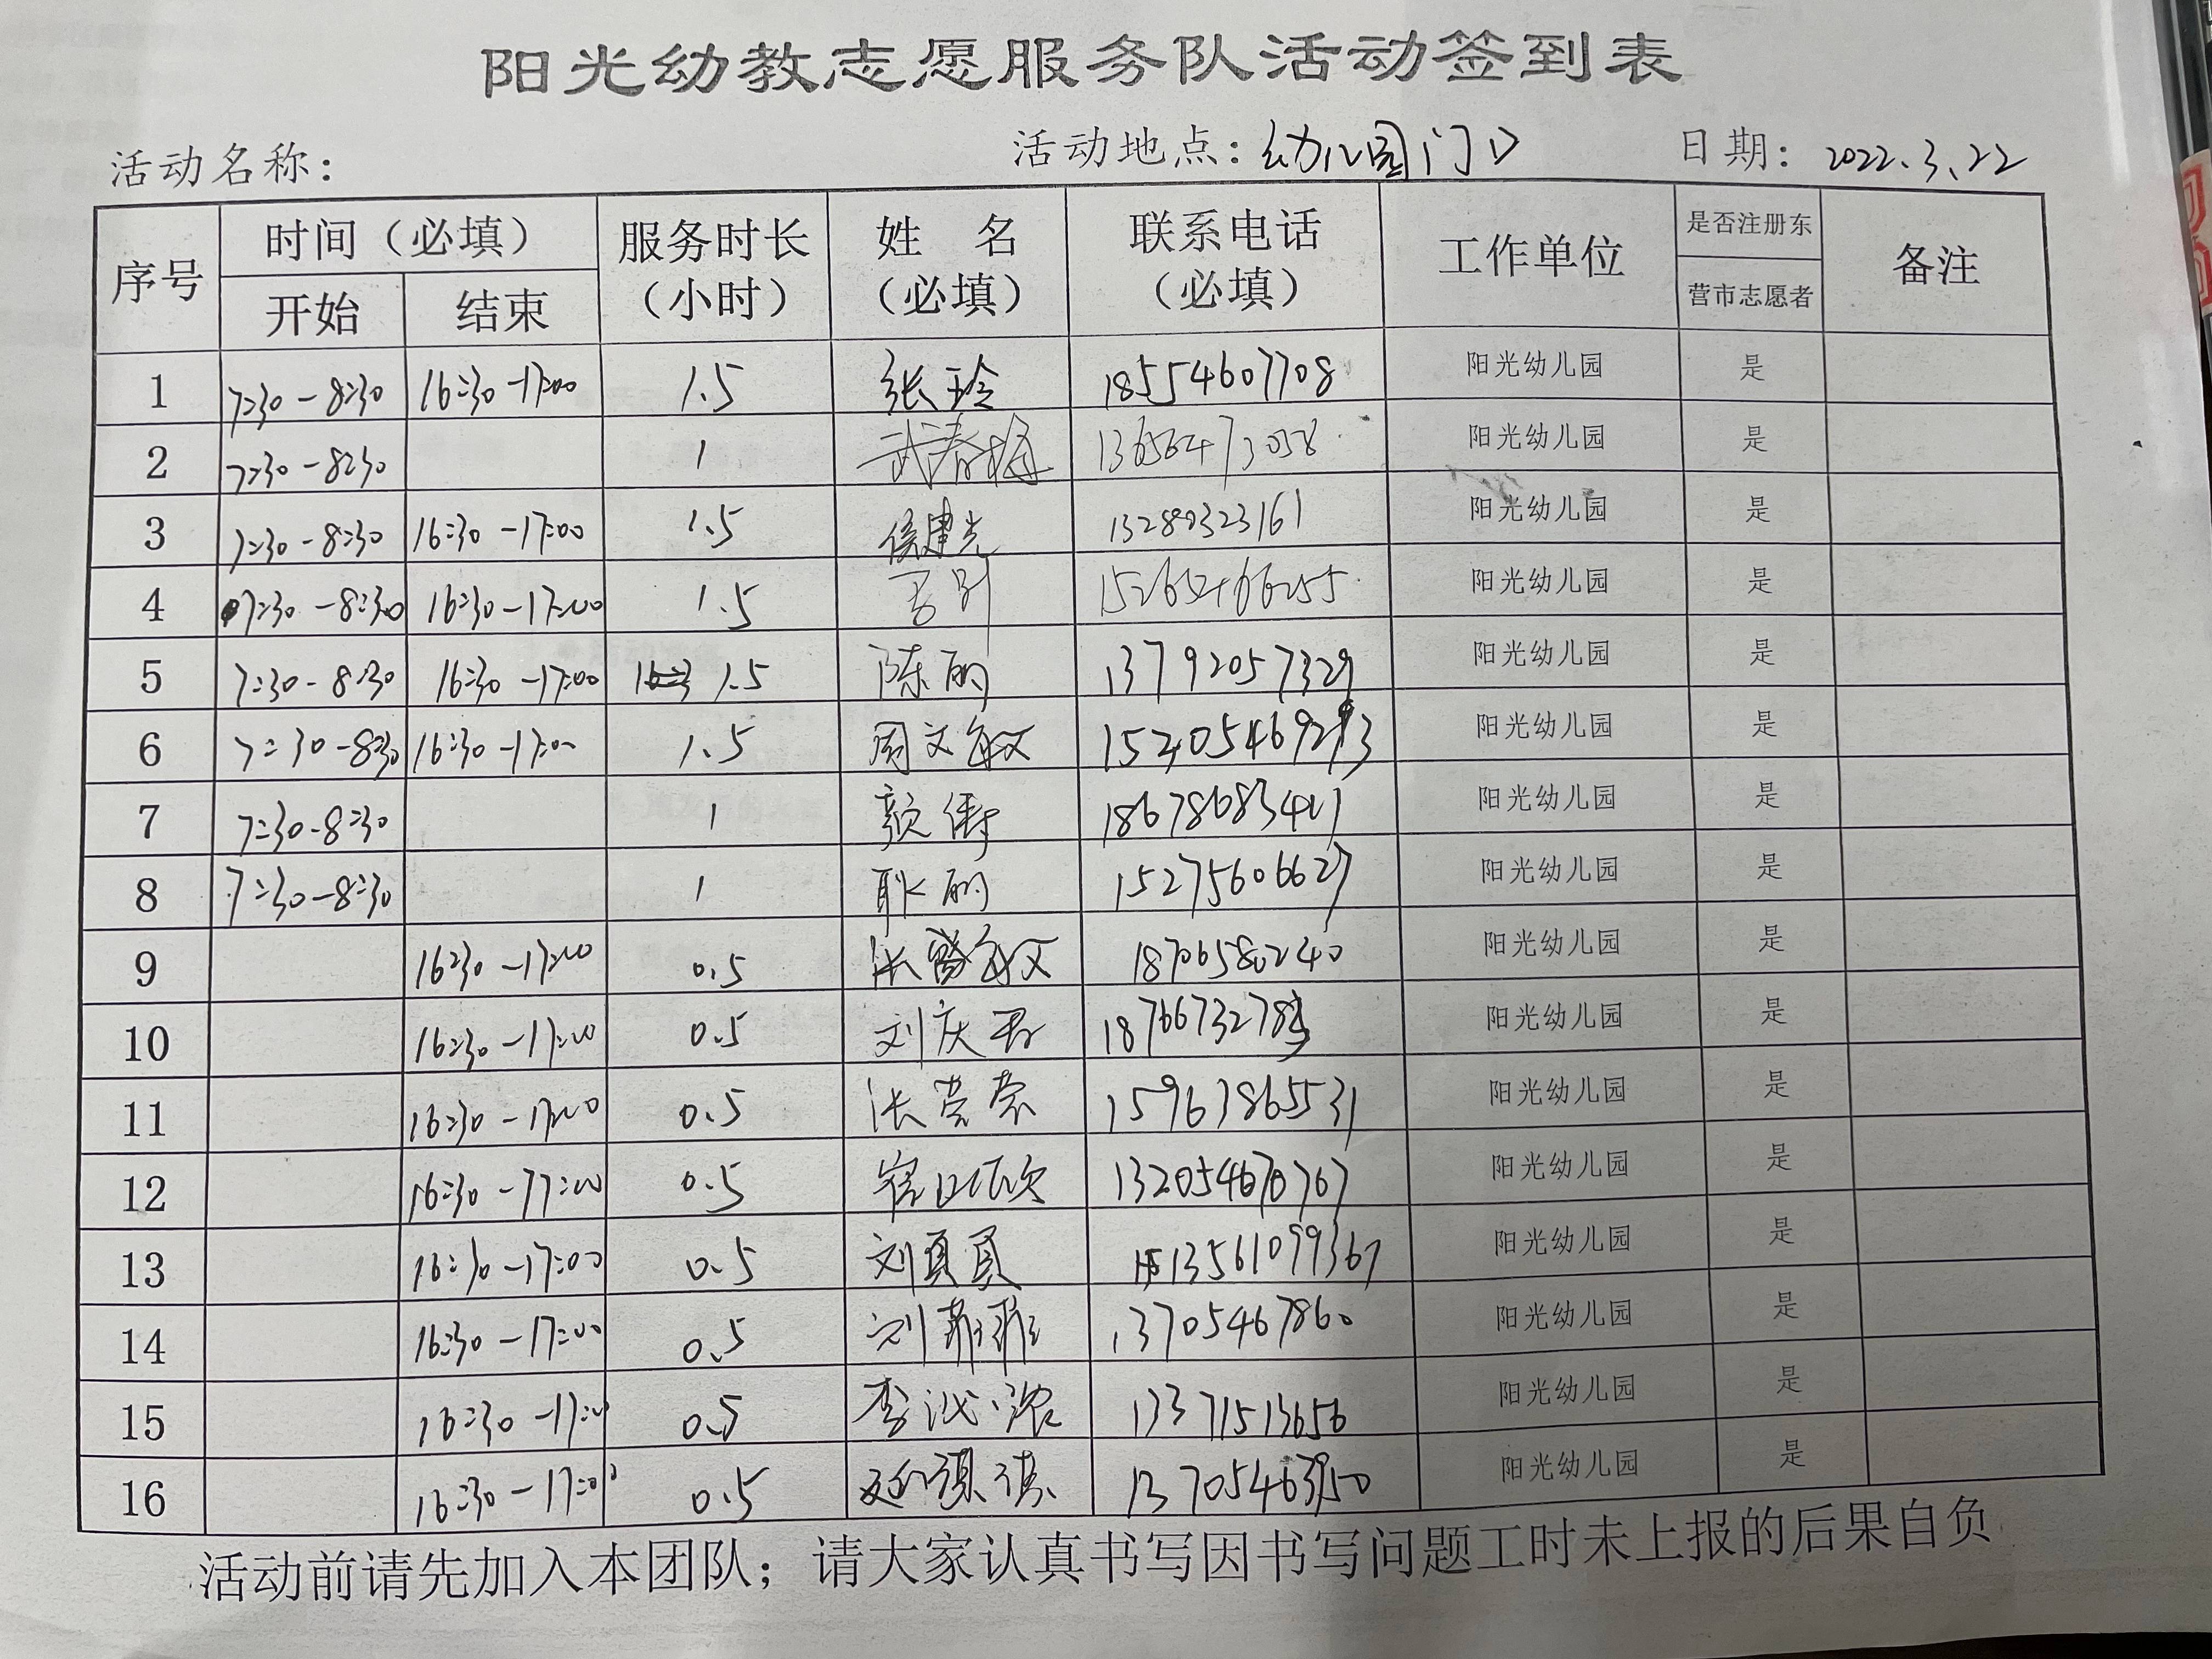 阳光幼教志愿服务队活动签到表
活动名称： 活动地点：幼儿园门口 日期：2022.3.22
序号 时间（必填） 服务时长（小时） 姓 名（必填） 联系电话（必填） 工作单位 是否注册东营市志愿者 备注
开始 结束
1 7:30-8:30 16:30-17:00 1.5 张玲 18554607708 阳光幼儿园 是
2 7:30-8:30 1 武春梅 13656473058 阳光幼儿园 是
3 7:30-8:30 16:30-17:00 1.5 侯建光 13289323161 阳光幼儿园 是
4 7:30-8:30 16:30-17:00 1.5 阳光幼儿园 是
5 7:30-8:30 16:30-17:00 1.5 陈丽 13792057329 阳光幼儿园 是
6 7:30-8:30 16:30-17:00 1.5 周文敏 阳光幼儿园 是
7 7:30-8:30 1 颜倩 阳光幼儿园 是
8 7:30-8:30 1 耿丽 15275606627 阳光幼儿园 是
9 16:30-17:00 0.5 18706580240 阳光幼儿园 是
10 16:30-17:00 0.5 刘庆君 阳光幼儿园 是
11 16:30-17:00 0.5 15963865531 阳光幼儿园 是
12 16:30-17:00 0.5 13205467767 阳光幼儿园 是
13 16:30-17:00 0.5 刘真真 13561099367 阳光幼儿园 是
14 16:30-17:00 0.5 刘菲菲 13705467860 阳光幼儿园 是
15 16:30-17:00 0.5 13371513656 阳光幼儿园 是
16 16:30-17:00 0.5 阳光幼儿园 是
活动前请先加入本团队；请大家认真书写因书写问题工时未上报的后果自负